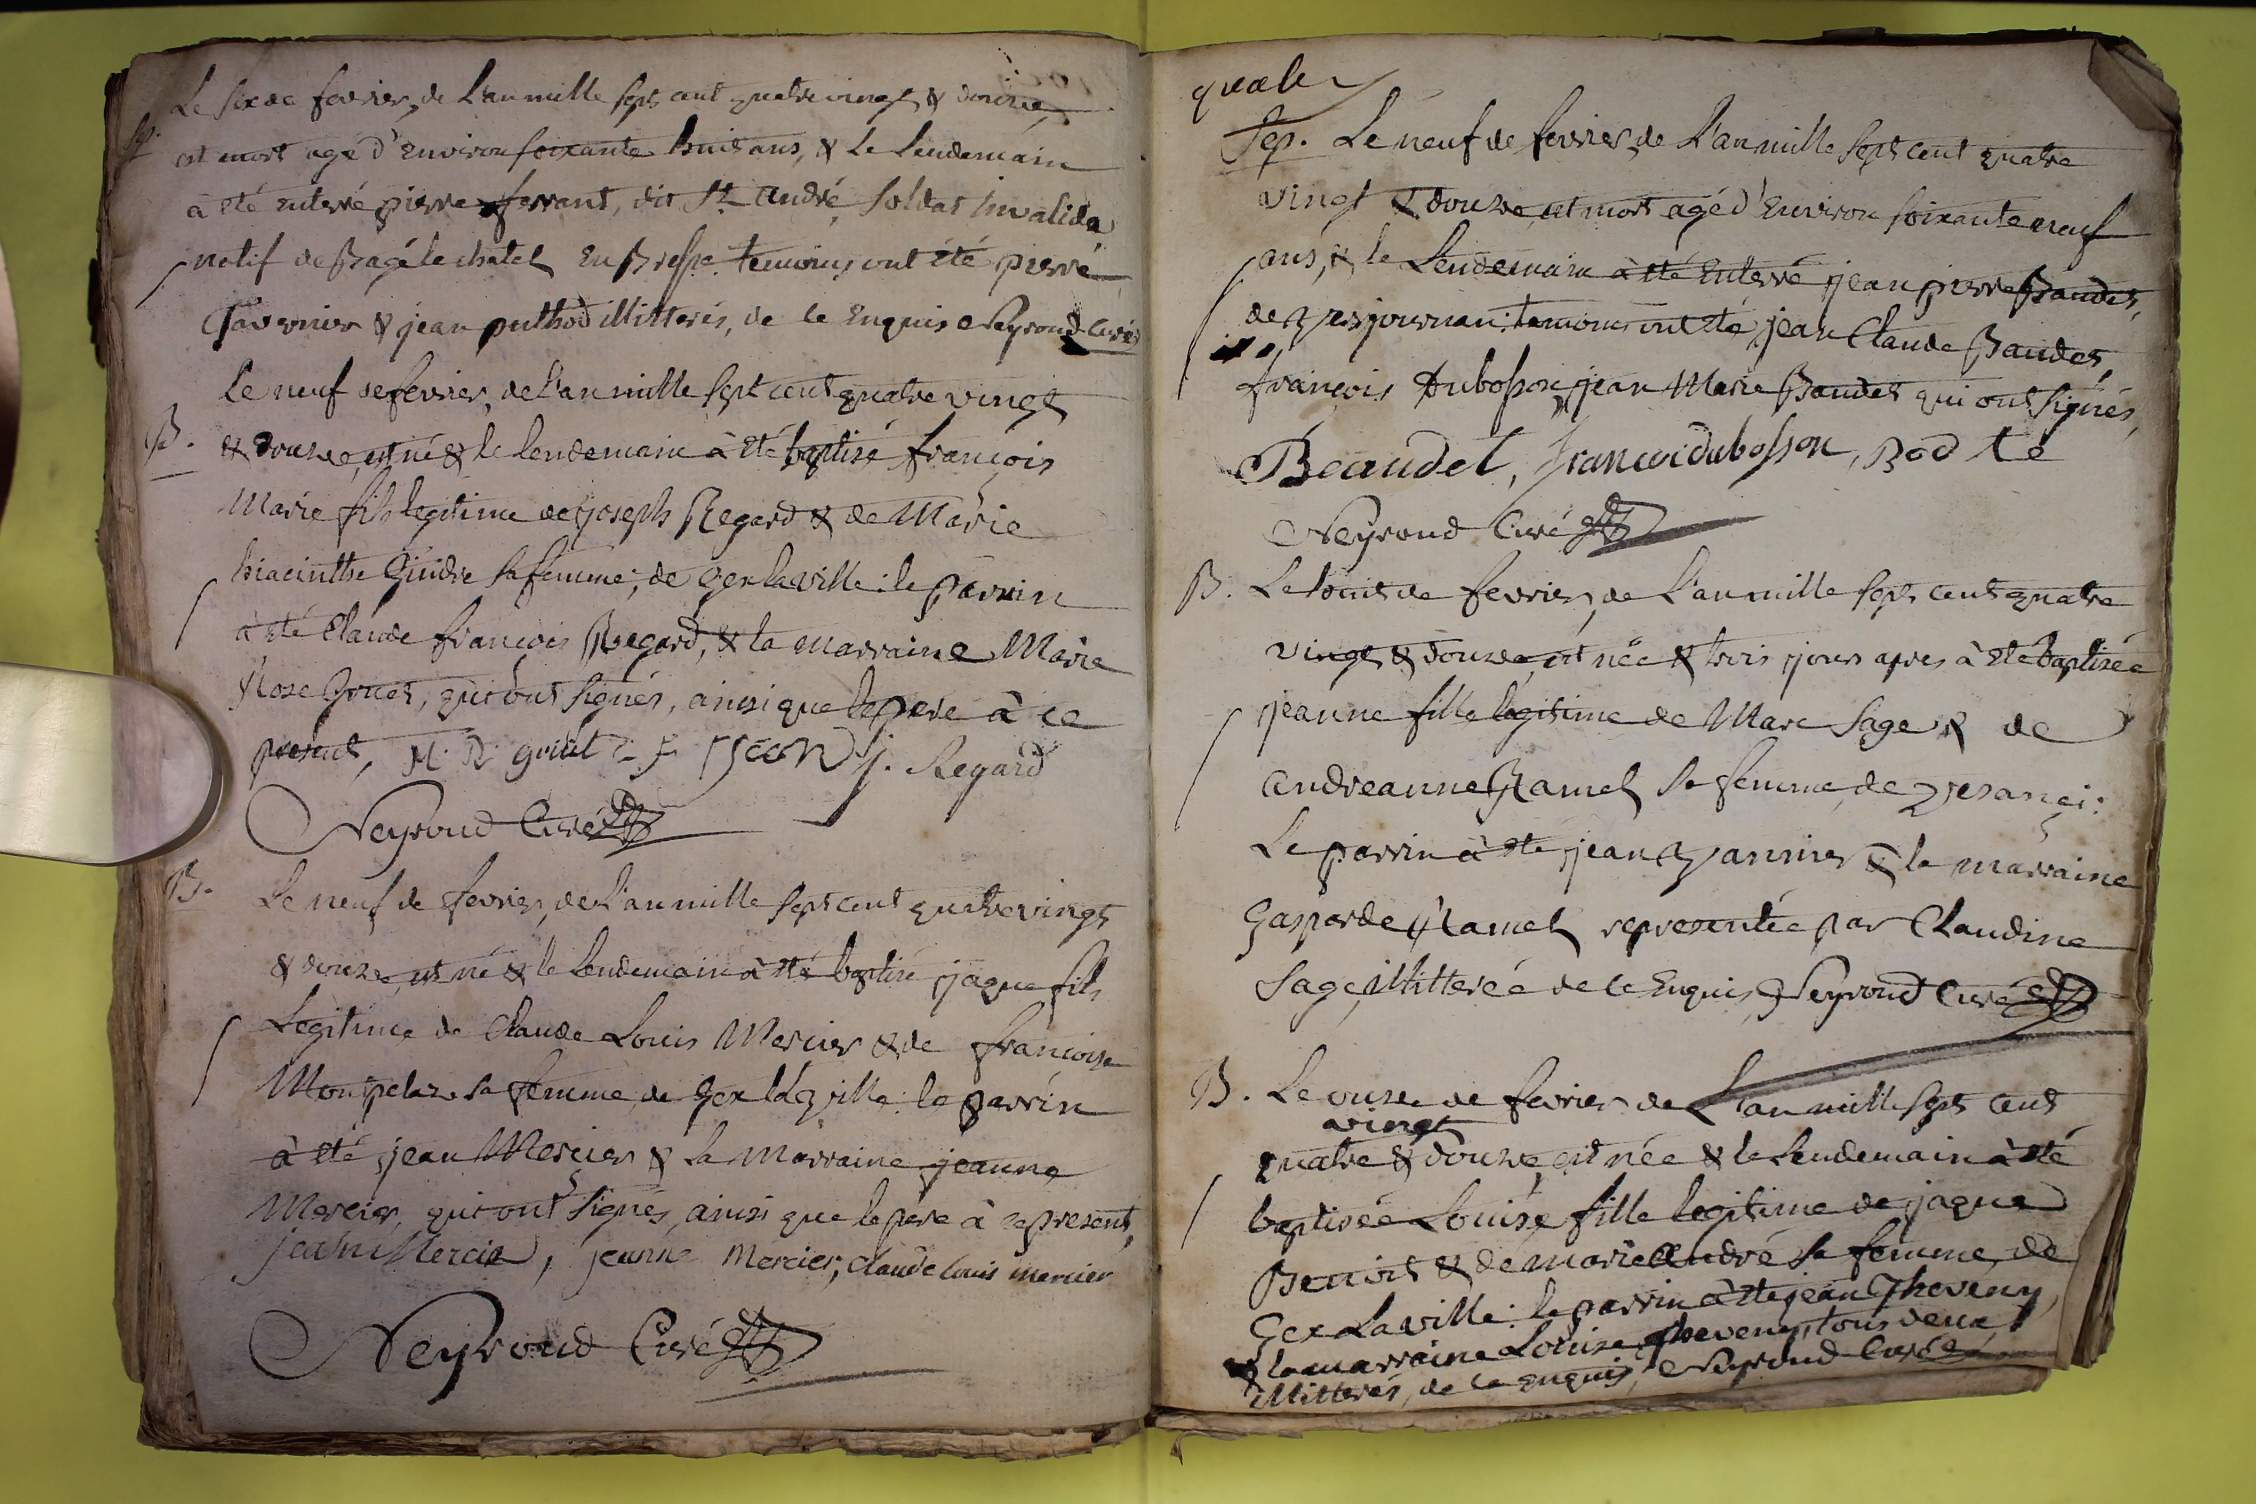 Sep.
Le six de fevrier, de L'an mille sept cent quatre vingt & douze,
est mort agé d'Environ soixante huit ans, & Le Lendemain
à été enterré pierre ferrant, dit St André soldat invalide,
natif de Bagé le chatel En Bresse. temoins ont été pierre
Tavernier & jean puthod illitterés, de ce Enquis Neyroud Curé
B.
Le neuf de fevrier, de L'an mille sept cent quatre vingt
& douze, est né & le lendemain à été baptisé françois
Marie fils legitime de joseph Regard & de Marie
hiacinthe Gindre sa femme, de Gex la ville: le parrin
à été Claude françois Regard, & la marraine Marie
Rose Gruet, qui ont signés, ainsi que le pere à ce
present, M. R. j. Regard
Neyroud Curé
B.
Le neuf de fevrier, de L'an mille sept cent quatre vingt
& douze, est né & le Lendemain à été baptisé jaque fils
Legitime de Claude Louis Mercier & de françoise
Monpelaz sa femme de Gex la ville: le parrin
à été jean Mercier & La marraine jeanne
Mercier, qui ont signés, ainsi que le pere à ce present,
jean Mercie, jeanne Mercier, Claude louis mercier
Neyroud Curé
quatre
Sep. Le neuf de fevrier, de L'an mille sept cent quatre
vingt & douze, est mort agé d'Environ soixante neuf
ans, & le Lendemain à été Enterré jean pierre Baudet,
de: temoins ont été jean Claude Baudet,
françois Dubosson, jean Marie Baudet qui ont signés,
Beaudet, francoi dubosson,
Neyroud Curé
B. Le huit de fevrier, de L'an mille sept cent quatre
vingt & douze, est née & trois jours apres à été baptisée
jeanne fille legitime de Marc Sage & de
andreanne Ramel sa femme, de
Le parrin à été jean & la marraine
Gasparde Ramel representée par Claudine
Sage, illitterée de ce Enquis, Neyroud Curé
B. Le onze de fevrier de L'an mille sept cent
vingt
quatre & douze, est née & le Lendemain à été
baptisée Louise fille legitime de jaque
Benoit & de marie André sa femme, de
Gex La ville: le parrin à été jean Theveny,
& la marraine Louise theveny, tous deux
illitterés, de ce enquis, Neyroud Curé